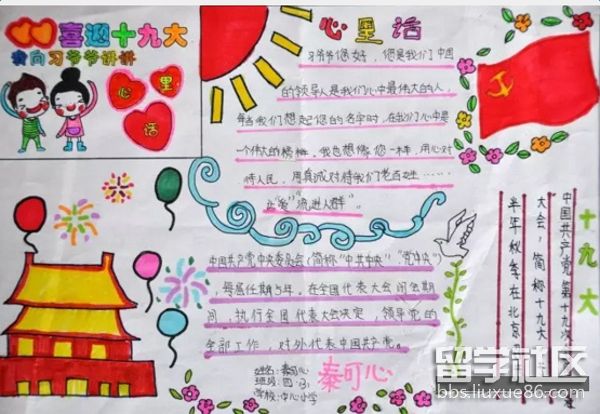 喜迎十九大
我向习爷爷讲讲
心里话
心里话
习爷爷您好，您是我们中国
的领导人是我们心中最伟大的人，
每当我们想起您的名字时，在我们心中是
一个伟大的榜样，我也想像您一样，用心对
待人民，用真诚对待我们老百姓……
中国共产党中央委员会（简称“中共中央”“党中央”）
，每届任期5年，在全国代表大会闭会期
间，执行全国代表大会决定，领导党的
全部工作，对外代表中国共产党。
姓名：秦可心
班级：四（3）
学校：中心小学
秦可心
十九大
中国共产党第十九次
大会，简称十九大
半年秋季在北京
留学社区
bbs.liuxue86.com